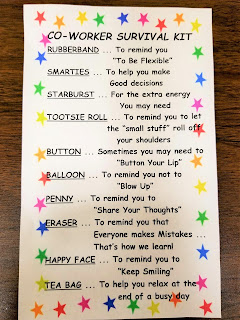 CO-WORKER SURVIVAL KIT
RUBBERBAND ... To remind you
"To Be Flexible"
SMARTIES ... To help you make
Good decisions
STARBURST ... For the extra energy
You may need
TOOTSIE ROLL ... To remind you to let
the "small stuff" roll off
your shoulders
BUTTON ... Sometimes you may need to
"Button Your Lip"
BALLOON ... To remind you not to
"Blow Up"
PENNY ... To remind you to
"Share Your Thoughts"
ERASER ... To remind you that
Everyone makes Mistakes ...
That's how we learn!
HAPPY FACE ... To remind you to
"Keep Smiling"
TEA BAG ... To help you relax at the
end of a busy day